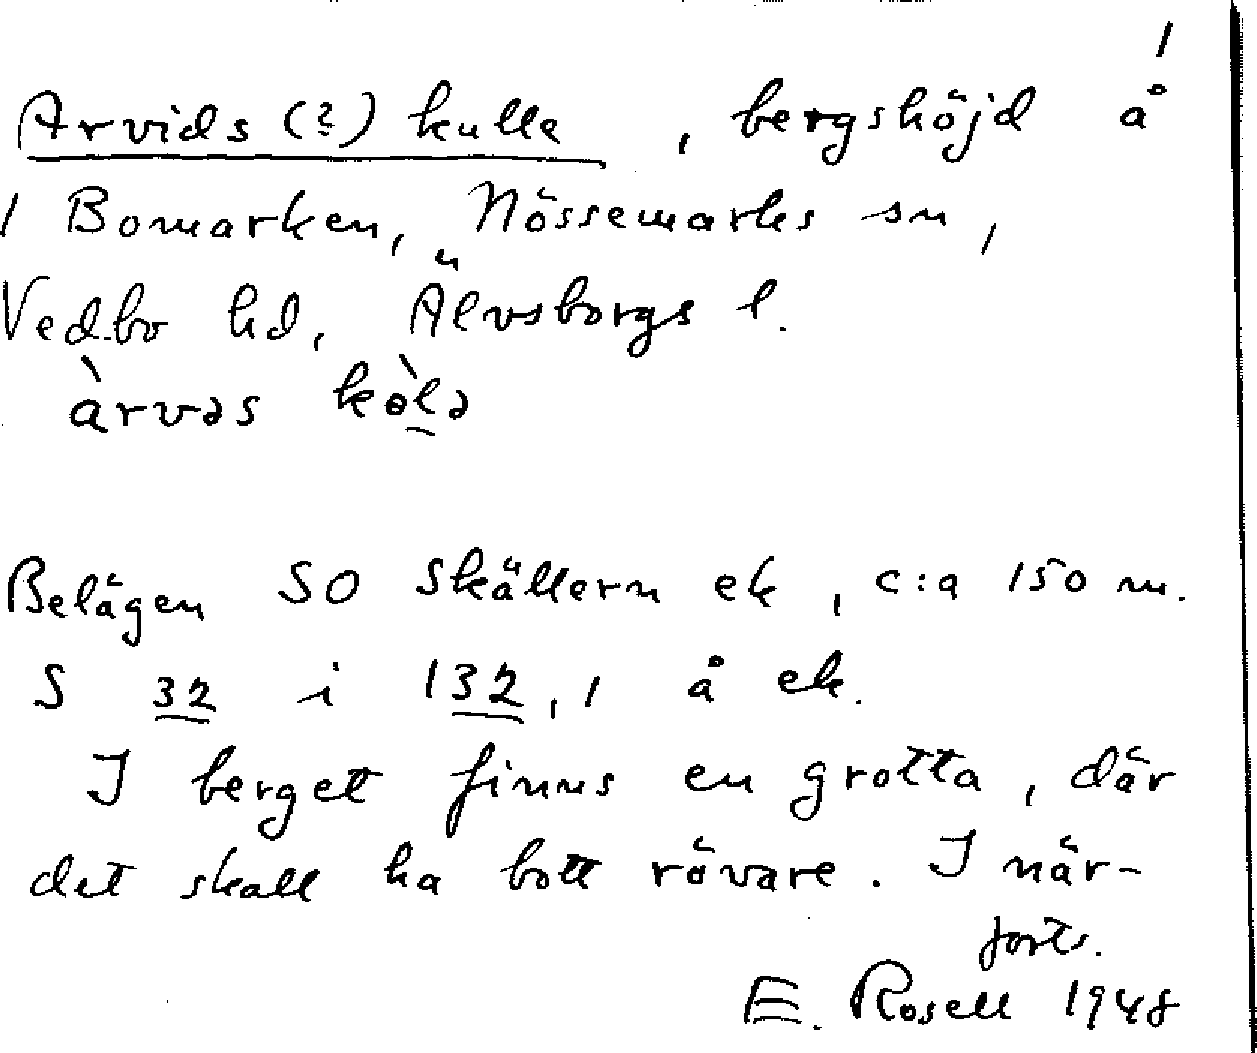 1
Arvids (?) kulle, bergshöjd å
1 Bomarken, Nössemarks sn,
Vedbo hd, Älvsborgs l.
àrvəs kòlə
Belägen SO Skällern ek, c:a 150 m.
S 32 i 132,1 å ek.
I berget finns en grotta, där
det skall ha bott rövare. I när-
forts.
E. Rosell 1948